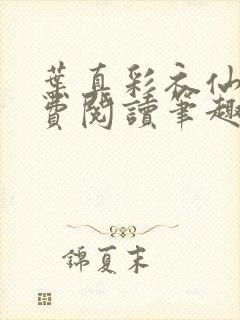 葉真彩衣仙
費閱讀筆趣
錦夏末